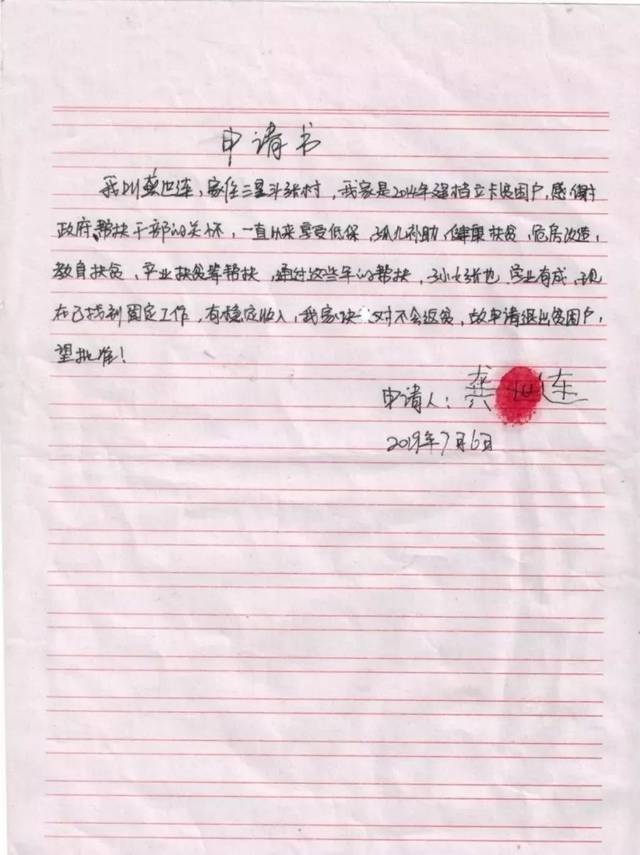 申请书
我叫龚四连，家住三星斗张村，我家是2014年建档立卡贫困户，感谢
政府帮扶干部的关怀，一直以来享受低保、孤儿补助、健康扶贫、危房改造，
教育扶贫、产业扶贫等帮扶，通过这些年的帮扶，孙女张也学业有成，现
在已找到固定工作，有稳定收入，我家决对不会返贫，故申请退出贫困户，
望批准！
申请人：龚 连
2019年7月6日